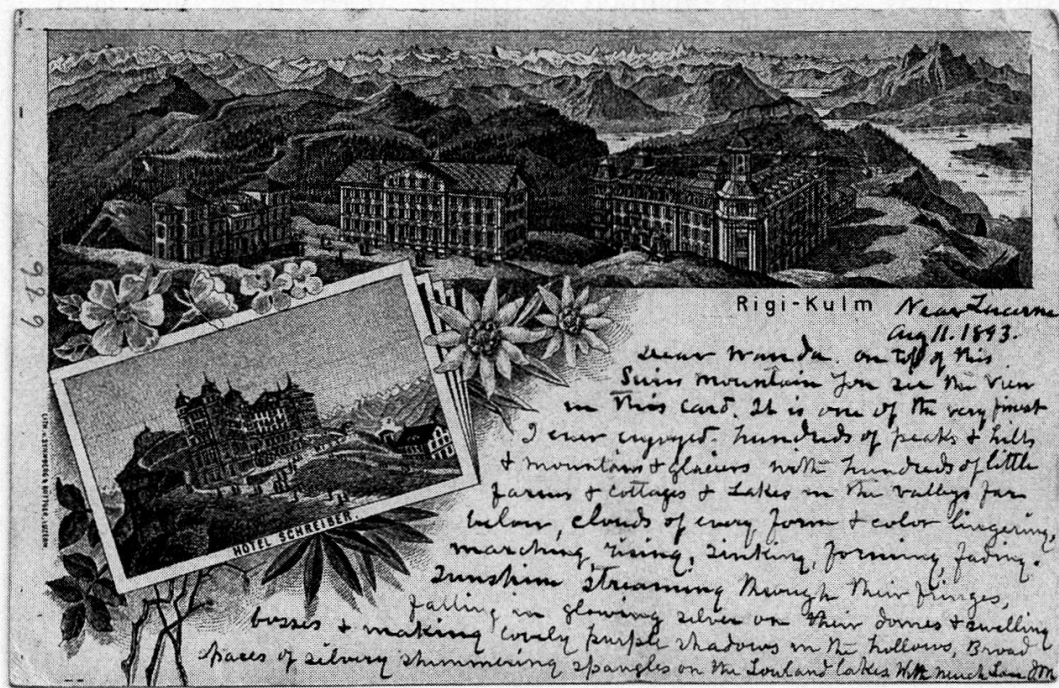 Rigi-Kulm
Near Lucerne
Aug 11. 1893.
Dear Wanda. on top of this
Swiss mountain you see the view
in this card. It is one of the very finest
I ever enjoyed. hundreds of peaks & hills
& mountains & glaciers with hundreds of little
farms & cottages & Lakes in the valleys far
below, clouds of every form & color lingering,
marching, rising, sinking, forming, fading.
Sunshine streaming through their fringes,
falling in glowing silver on their domes & swelling
bosses & making lovely purple shadows in the hollows, Broad
spaces of silvery shimmering spangles on the Lowland lakes With much Love J.M.
HOTEL SCHREIBER.
986